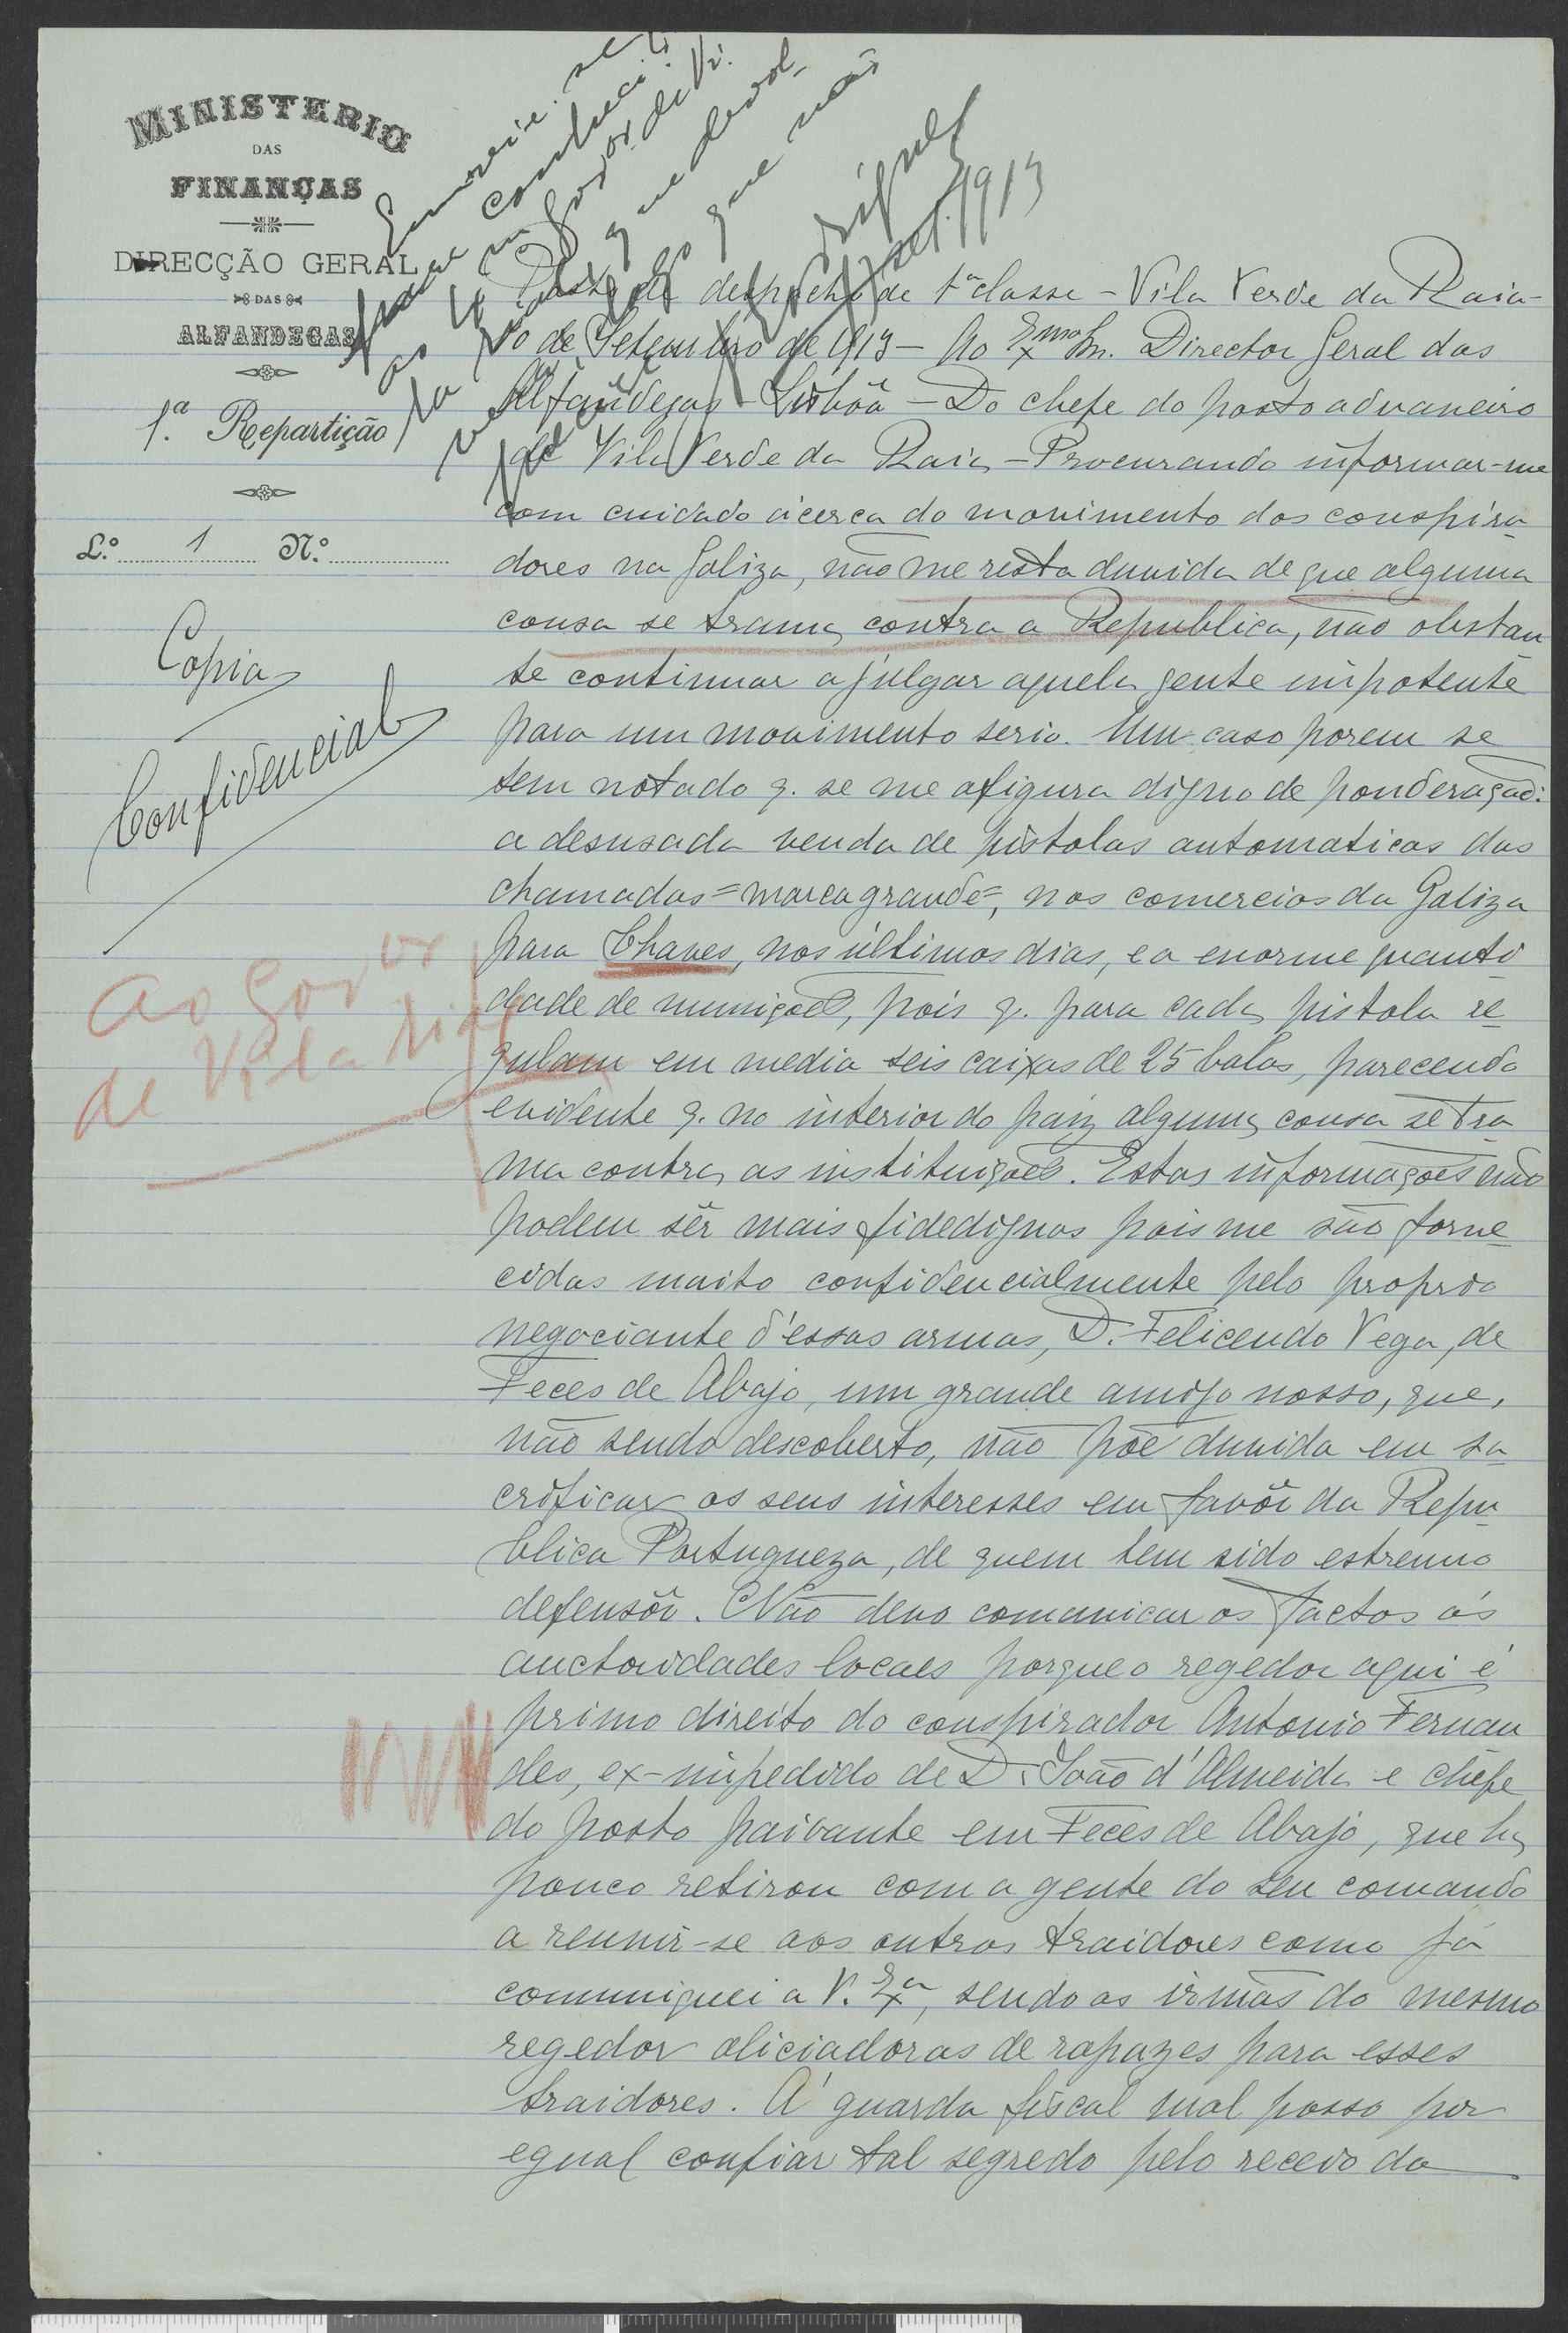 MINISTERIO
DAS
FINANÇAS
DIRECÇÃO GERAL
DAS
ALFANDEGAS
1.ª Repartição
L.º 1 N.º
Copia
Confidencial
Ao Gov.or
de Vila Rial
set. 1913
Posto de despacho de 1ª classe - Vila Verde da Raia -
10 de Setembro de 1913 - Ao Exmo Sr. Director Geral das
Alfandegas - Lisbôa - Do chefe do posto aduaneiro
de Vila Verde da Raia - Procurando informar-me
com cuidado ácerca do movimento dos conspira
dores na Galiza, não me resta duvida de que alguma
cousa se trama contra a Republica, não obstan
te continuar a julgar aquela gente impotente
para um movimento serio. Um caso porem se
tem notado q. se me afigura digno de ponderação:
a desusada venda de pistolas automaticas das
chamadas = marca grande =, nos comercios da Galiza
para Chaves, nos últimos dias, e a enorme quanti
dade de munições, pois q. para cada pistola re
gulam em media seis caixas de 25 balas, parecendo
evidente q. no interior do paiz alguma cousa se tra
ma contra as instituições. Estas informações não
podem sêr mais fidedignas pois me são forne
cidas muito confidencialmente pelo proprio
negociante d'essas armas, D. Felicendo Vega, de
Feces de Abajo, um grande amigo nosso, que,
não sendo descoberto, não põe duvida em sa
crificar os seus interesses em favôr da Repu
blica Portugueza, de quem tem sido estrenuo
defensôr. Não devo comunicar os factos ás
auctoridades locaes porque o regedor aqui é
primo direito do conspirador Antonio Fernan
des, ex-impedido de D. João d'Almeida e chefe
do posto paivante em Feces de Abajo, que ha
pouco retirou com a gente do seu comando
a reunir-se aos outros traidores como já
comuniquei a V. Exª, sendo as irmãs do mesmo
regedor aliciadoras de rapazes para esses
traidores. Á guarda fiscal mal posso por
egual confiar tal segredo pelo receio da